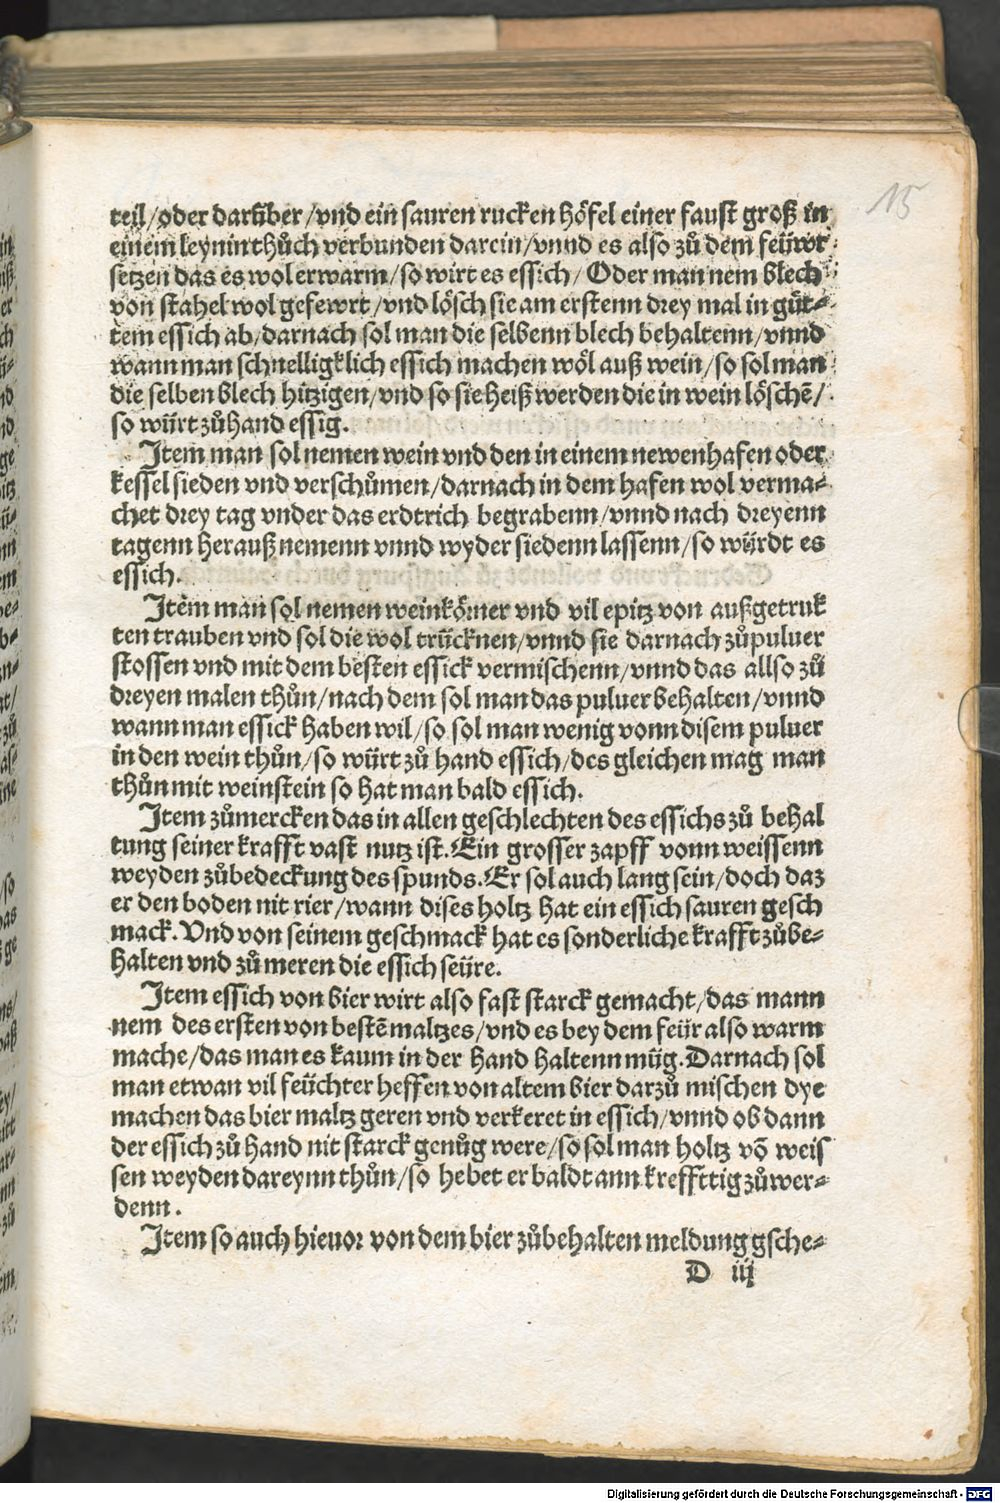 15
teil/oder darüber/vnd ein sauren rucken höfel einer faust groß in
einem leynin thůch verbunden darein/vnnd es also zů dem feüwr
setzen das es wol erwarm/so wirt es essich/Oder man nem blech
von stahel wol gefewrt/vnd lösch sie am erstenn drey mal in gůt-
tem essich ab/darnach sol man die selbenn blech behaltenn/vnnd
wann man schnelligklich essich machen wöl auß wein/so sol man
die selben blech hitzigen/vnd so sie heiß werden die in wein löschē/
so würt zůhand essig.
Item man sol nemen wein vnd den in einem newen hafen oder
kessel sieden vnd verschůmen/darnach in dem hafen wol verma-
chet drey tag vnder das erdtrich begrabenn/vnnd nach dreyenn
tagenn herauß nemenn vnnd wyder siedenn lassenn/so würdt es
essich.
Item man sol nemen weinkörner vnd vil epitz von außgetruk
ten trauben vnd sol die wol trücknen/vnnd sie darnach zůpuluer
stossen vnd mit dem besten essick vermischenn/vnnd das allso zů
dreyen malen thůn/nach dem sol man das puluer behalten/vnnd
wann man essick haben wil/so sol man wenig vonn disem puluer
in den wein thůn/so würt zů hand essich/des gleichen mag man
thůn mit weinstein so hat man bald essich.
Item zůmercken das in allen geschlechten des essichs zů behal
tung seiner krafft vast nutz ist. Ein grosser zapff vonn weissenn
weyden zůbedeckung des spunds. Er sol auch lang sein/doch daz
er den boden nit rier/wann dises holtz hat ein essich sauren gesch
mack. Vnd von seinem geschmack hat es sonderliche krafft zůbe-
halten vnd zů meren die essich seüre.
Item essich von bier wirt also fast starck gemacht/das mann
nem des ersten von bestē maltzes/vnd es bey dem feür also warm
mache/das man es kaum in der hand haltenn müg. Darnach sol
man etwan vil feüchter heffen von altem bier darzů mischen dye
machen das bier maltz geren vnd verkeret in essich/vnnd ob dann
der essich zů hand nit starck genůg were/so sol man holtz vō weis
sen weyden dareynn thůn/so hebet er baldt ann kreffttig zůwer-
denn.
Item so auch hieuor von dem bier zůbehalten meldung gsche-
D iij
Digitalisierung gefördert durch die Deutsche Forschungsgemeinschaft - DFG